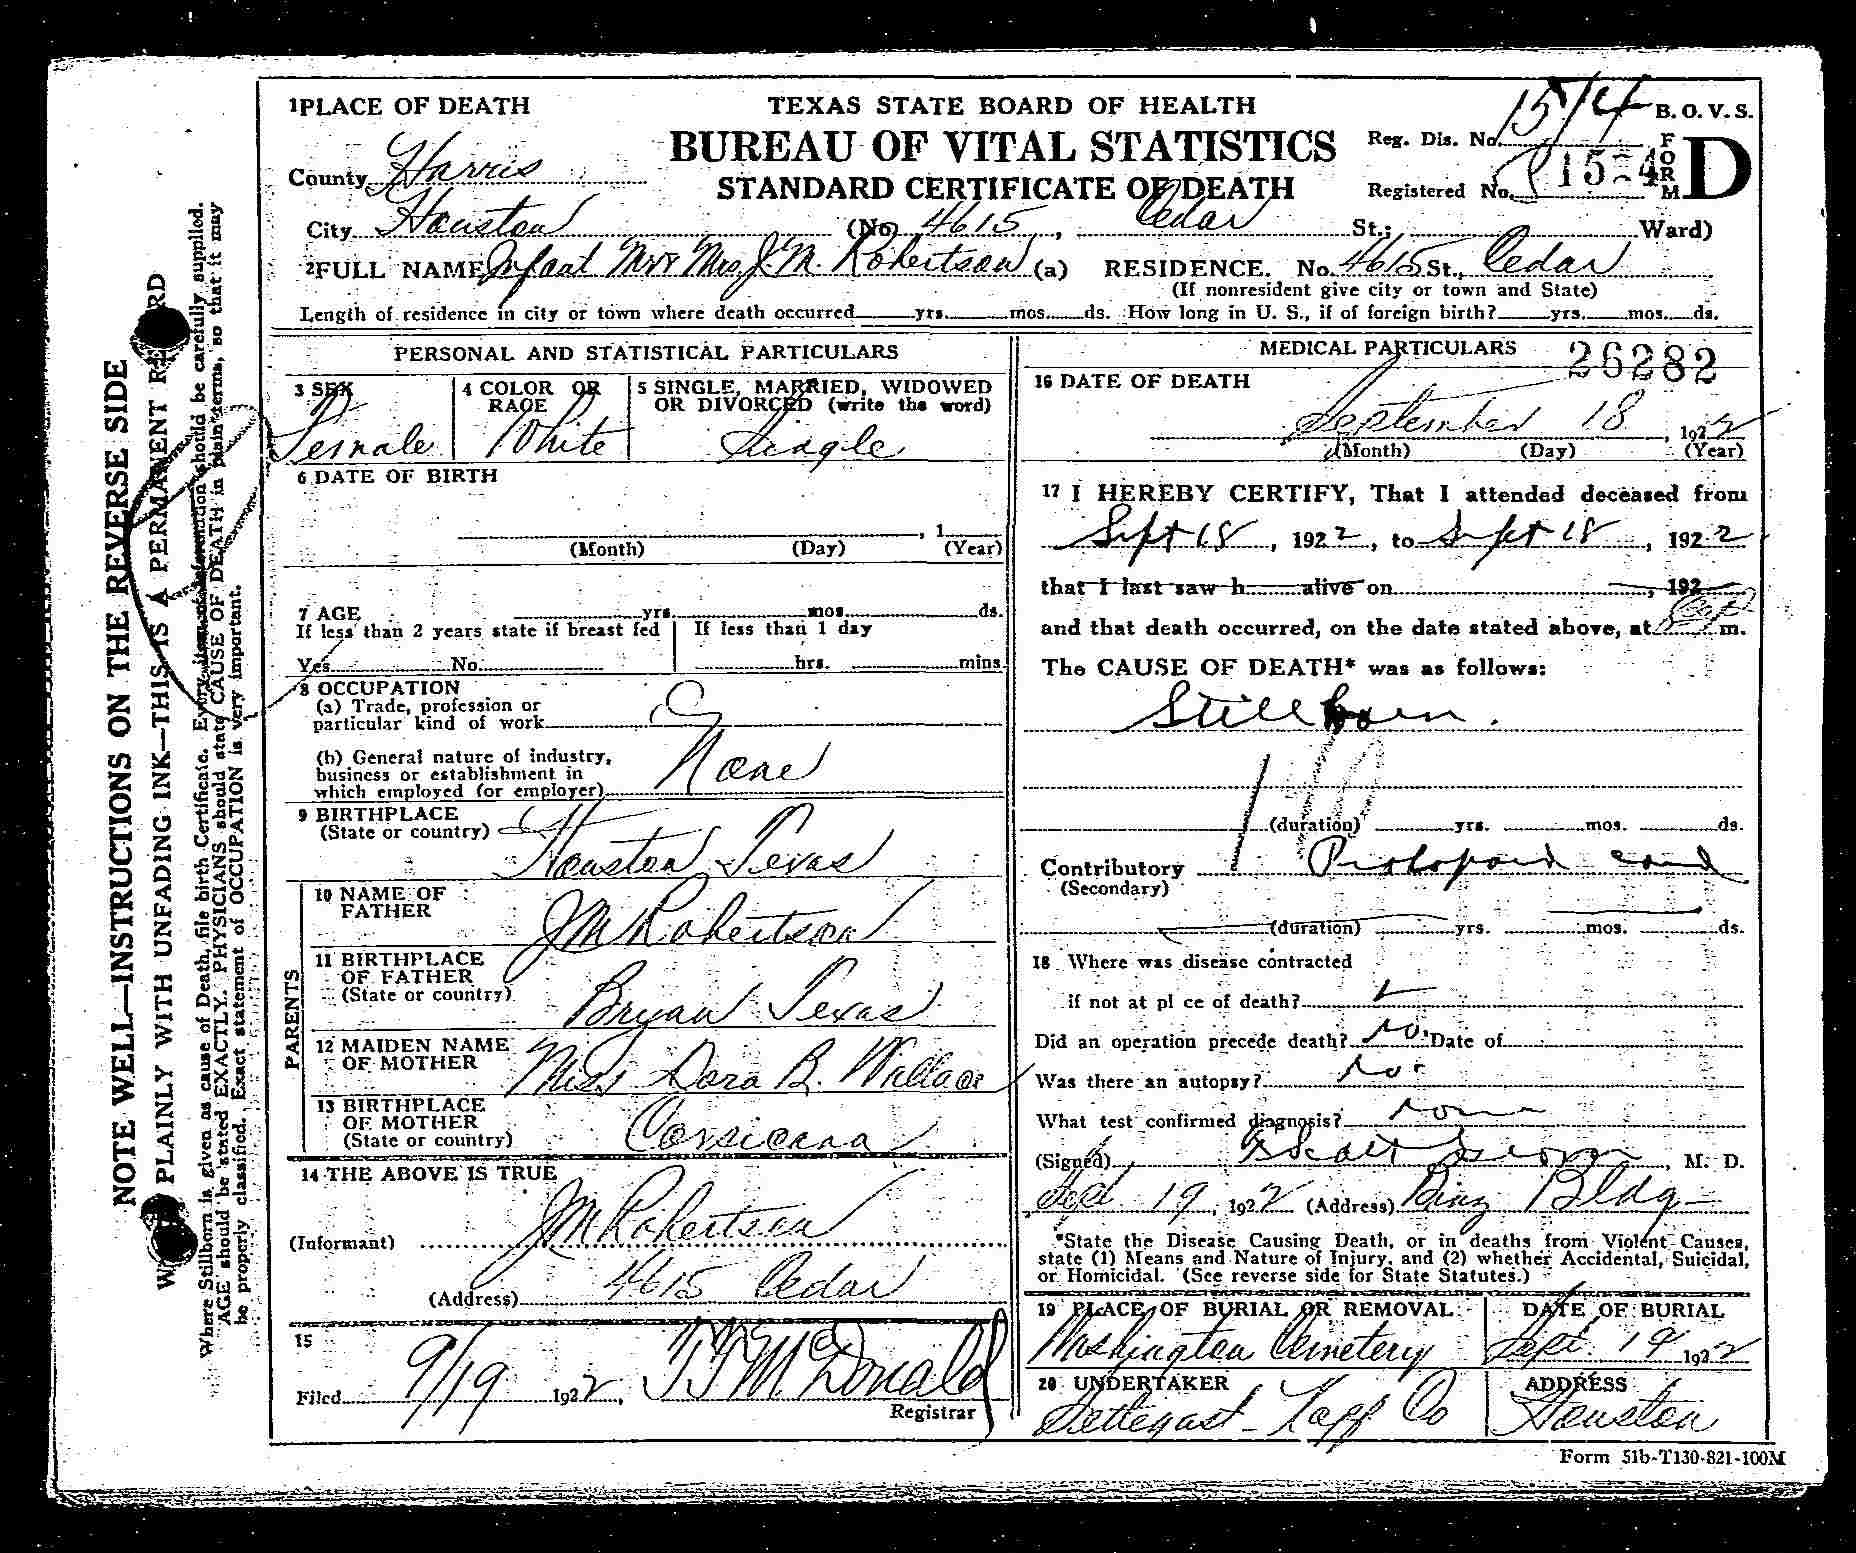 1 PLACE OF DEATH
TEXAS STATE BOARD OF HEALTH
B. O. V. S.
BUREAU OF VITAL STATISTICS
Reg. Dis. No. 1514
STANDARD CERTIFICATE OF DEATH
Registered No.
FORM D
County Harris
City Houston (No 4615, Cedar St.; Ward)
2 FULL NAME Infant Mr & Mrs. J. M. Robertson (a) RESIDENCE. No. 4615 St., Cedar
(If nonresident give city or town and State)
Length of residence in city or town where death occurred yrs. mos. ds. How long in U. S., if of foreign birth? yrs. mos. ds.
PERSONAL AND STATISTICAL PARTICULARS
3 SEX
Female
4 COLOR OR
RACE
White
5 SINGLE, MARRIED, WIDOWED
OR DIVORCED (write the word)
Single
6 DATE OF BIRTH
, 1
(Month) (Day) (Year)
7 AGE yrs. mos. ds.
If less than 2 years state if breast fed
Yes No.
If less than 1 day
hrs. mins.
8 OCCUPATION
(a) Trade, profession or
particular kind of work
(b) General nature of industry,
business or establishment in
which employed (or employer)
None
9 BIRTHPLACE
(State or country)
Houston Texas
PARENTS
10 NAME OF
FATHER
J M Robertson
11 BIRTHPLACE
OF FATHER
(State or country)
Bryan Texas
12 MAIDEN NAME
OF MOTHER
Miss Dora B. Wallace
13 BIRTHPLACE
OF MOTHER
(State or country)
Corsicana
14 THE ABOVE IS TRUE
(Informant) J M Robertson
(Address) 4615 Cedar
15
Filed 9/19 1922,
McDonald
Registrar
MEDICAL PARTICULARS 26282
16 DATE OF DEATH
September 18, 1922
(Month) (Day) (Year)
17 I HEREBY CERTIFY, That I attended deceased from
Sept 18, 1922, to Sept 18, 1922
that I last saw h alive on , 192
and that death occurred, on the date stated above, at m.
The CAUSE OF DEATH* was as follows:
Stillborn.
(duration) yrs. mos. ds.
Contributory
(Secondary)
(duration) yrs. mos. ds.
18 Where was disease contracted
if not at pl ce of death?
Did an operation precede death? No. Date of
Was there an autopsy? No.
What test confirmed diagnosis? None
(Signed) , M. D.
Sept 19, 1922 (Address) Binz Bldg
*State the Disease Causing Death, or in deaths from Violent Causes,
state (1) Means and Nature of Injury, and (2) whether Accidental, Suicidal,
or Homicidal. (See reverse side for State Statutes.)
19 PLACE OF BURIAL OR REMOVAL
Washington Cemetery
DATE OF BURIAL
Sept. 19 1922
20 UNDERTAKER
Settegast-Kopf Co
ADDRESS
Houston
Form 51b-T130-821-100M
NOTE WELL—INSTRUCTIONS ON THE REVERSE SIDE
PLAINLY WITH UNFADING INK—THIS IS A PERMANENT
Where Stillborn is given as cause of Death, file birth Certificate. Every item of information should be carefully supplied.
AGE should be stated EXACTLY. PHYSICIANS should state CAUSE OF DEATH in plain terms, so that it may
be properly classified. Exact statement of OCCUPATION is very important.